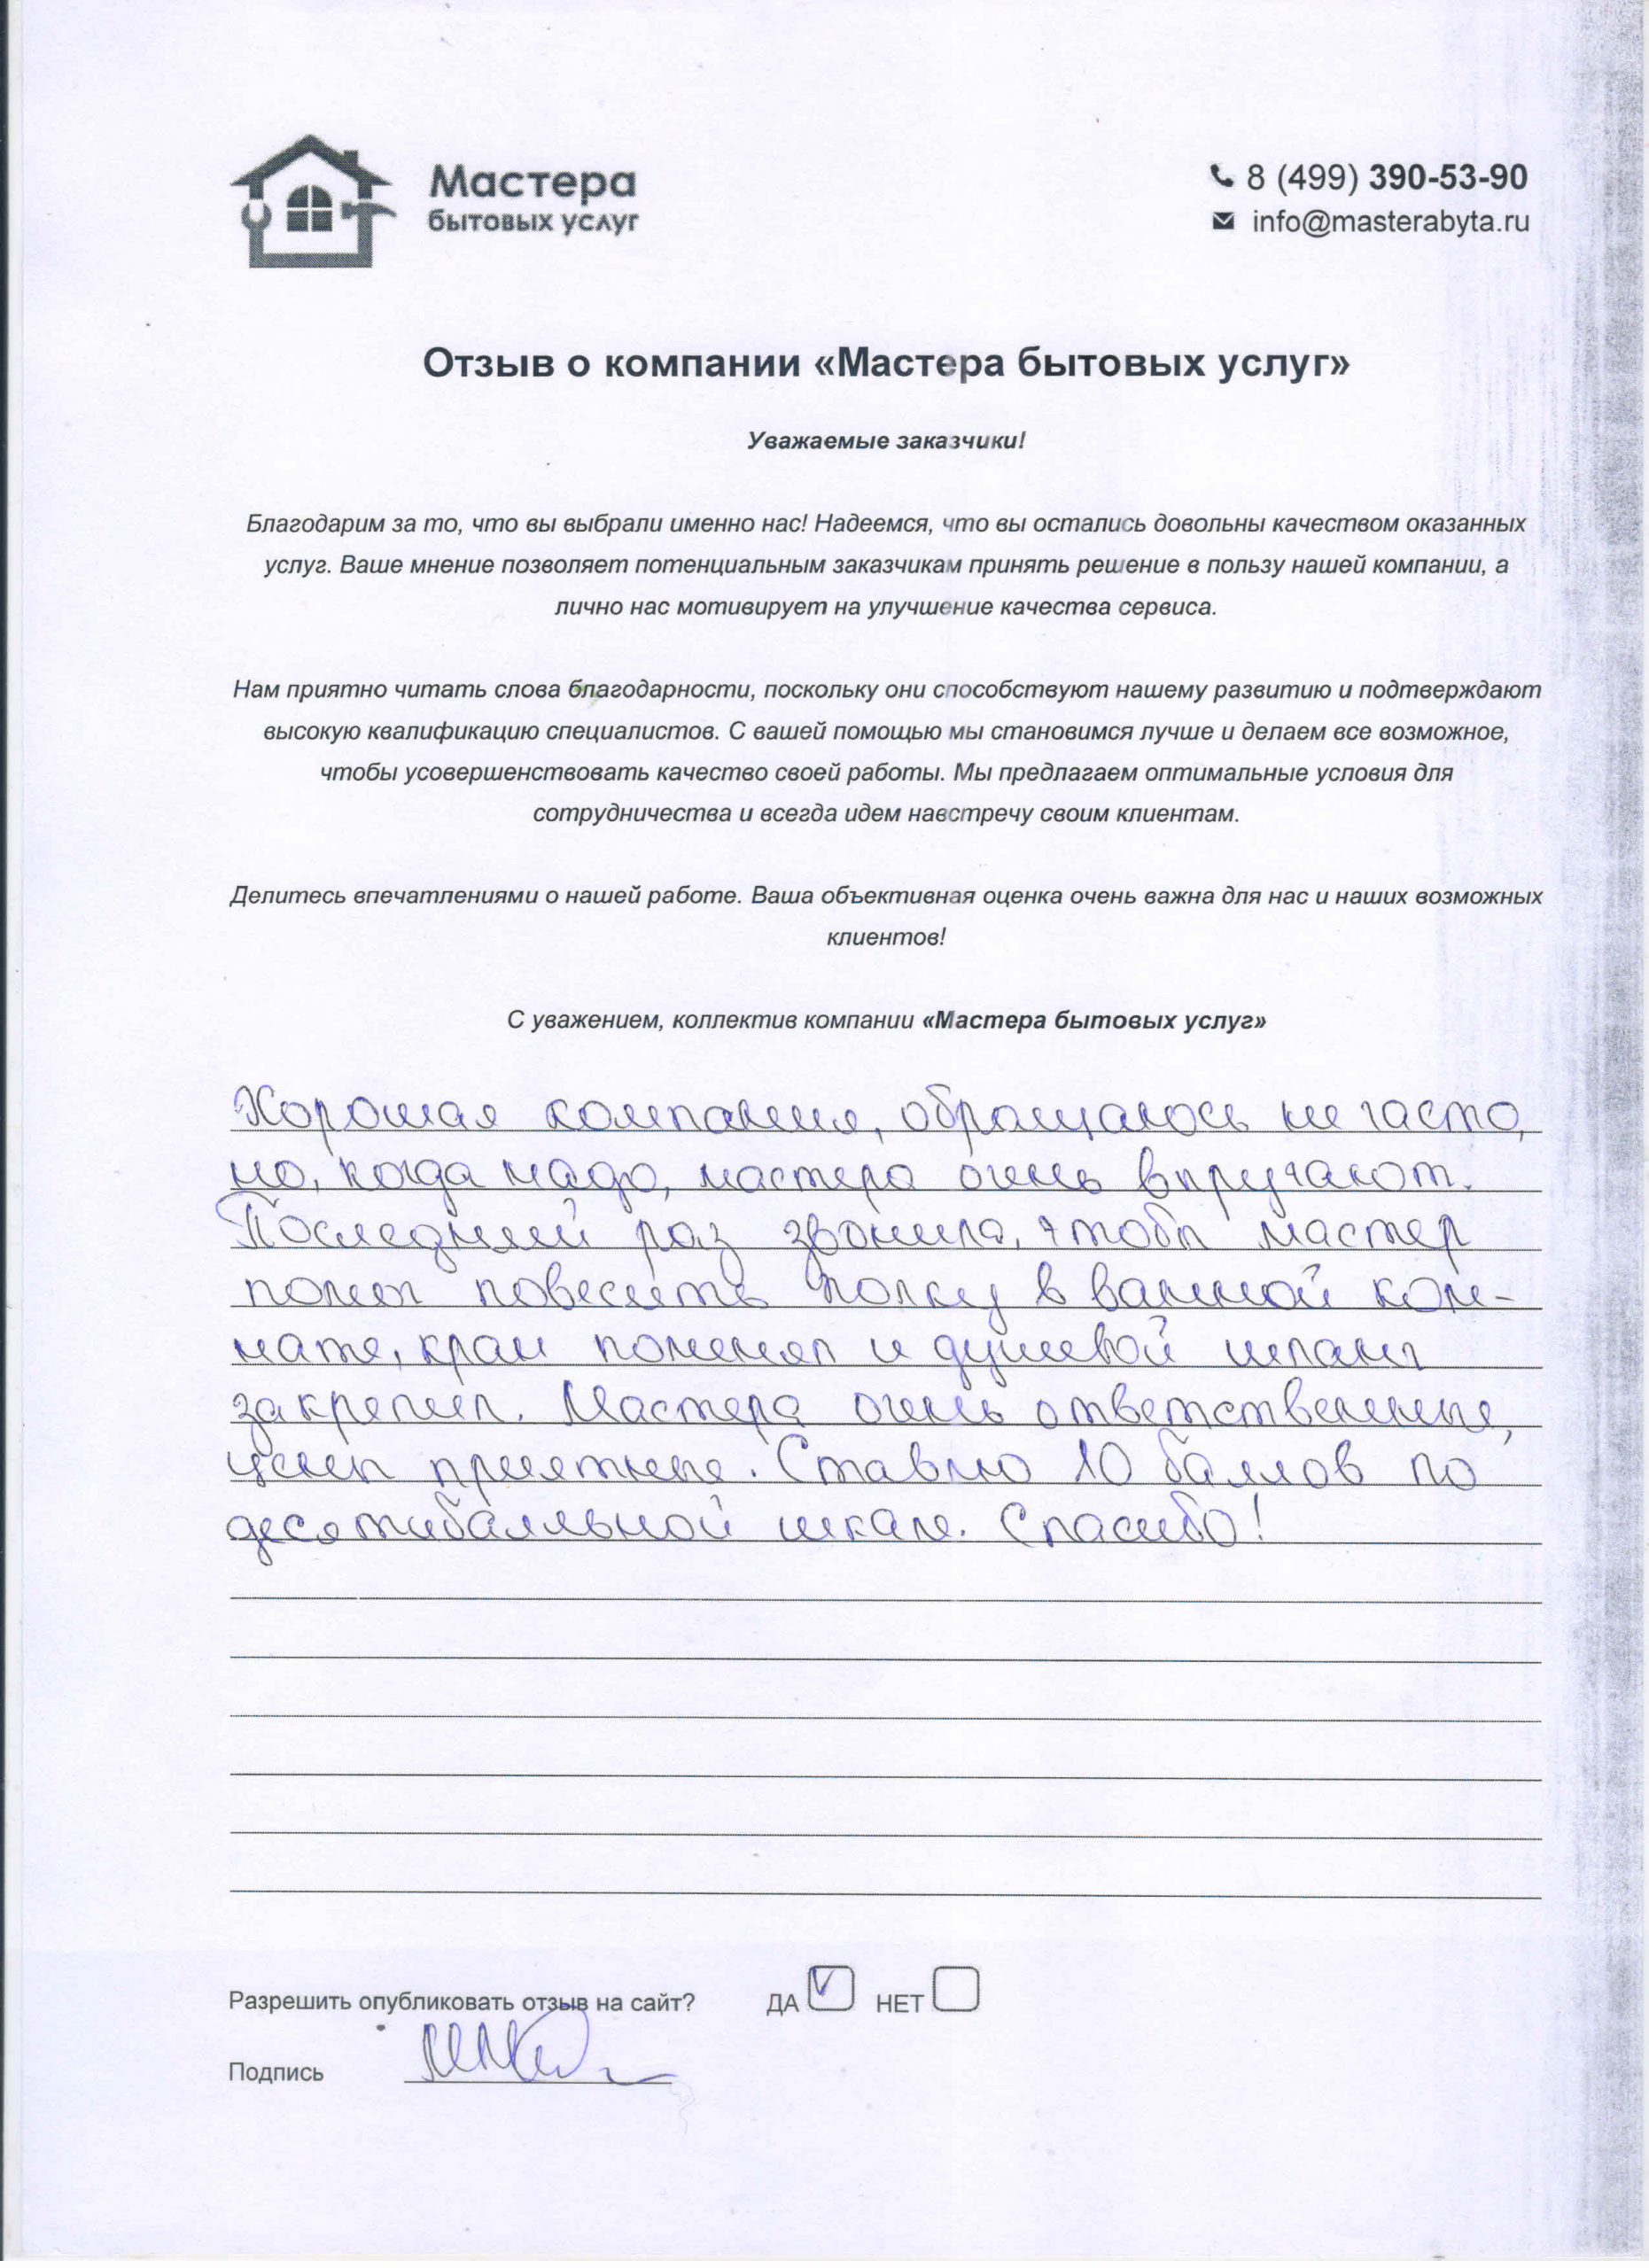 Мастера
бытовых услуг
8 (499) 390-53-90
info@masterabyta.ru
Отзыв о компании «Мастера бытовых услуг»
Уважаемые заказчики!
Благодарим за то, что вы выбрали именно нас! Надеемся, что вы остались довольны качеством оказанных
услуг. Ваше мнение позволяет потенциальным заказчикам принять решение в пользу нашей компании, а
лично нас мотивирует на улучшение качества сервиса.
Нам приятно читать слова благодарности, поскольку они способствуют нашему развитию и подтверждают
высокую квалификацию специалистов. С вашей помощью мы становимся лучше и делаем все возможное,
чтобы усовершенствовать качество своей работы. Мы предлагаем оптимальные условия для
сотрудничества и всегда идем навстречу своим клиентам.
Делитесь впечатлениями о нашей работе. Ваша объективная оценка очень важна для нас и наших возможных
клиентов!
С уважением, коллектив компании «Мастера бытовых услуг»
Хорошая компания, обращаюсь не часто,
но, когда надо, мастера очень выручают.
Последний раз звонила, чтобы мастер
помог повесить полку в ванной ком-
нате, кран поменял и душевой шланг
закрепил. Мастера очень ответственные,
цены приятные. Ставлю 10 баллов по
десятибалльной шкале. Спасибо!
Разрешить опубликовать отзыв на сайт? ДА НЕТ
Подпись